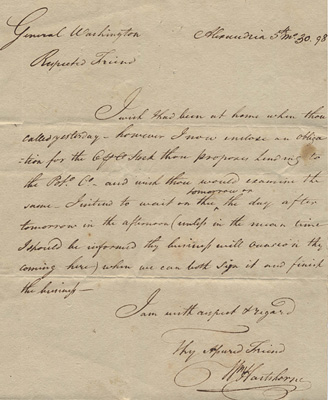 General Washington
Alexandria 5th Mo 30. 98
Respected Friend
I wish I had been at home when thou
called yesterday - however I now enclose an obliga
-tion for the 6 Ct Stock thou proposes lending to
the Pot. Co - and wish thou would examine the
same - I intend to wait on thee
tomorrow or
the day after
tomorrow in the afternoon (unless in the mean time
I should be informed thy business will occasion thy
coming here) when we can both sign it and finish
the business -
I am with respect & regard
Thy Assured Friend
Wm Hartshorne